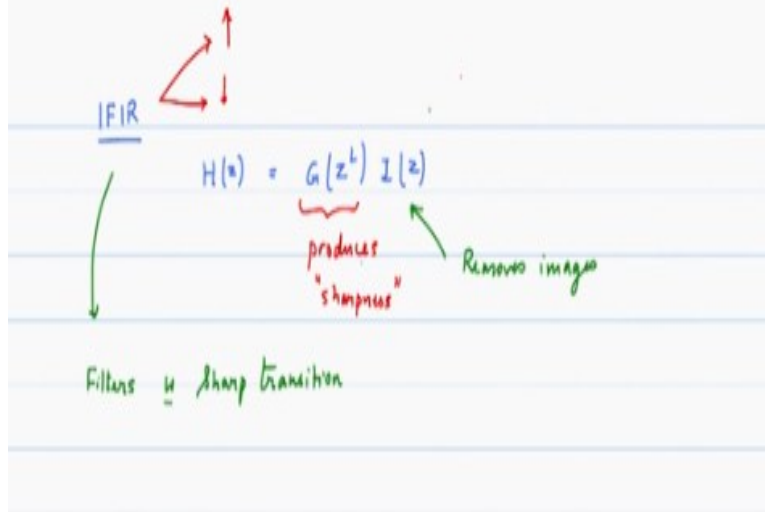 IFIR
H(z) = G(z^L) I(z)
produces
"sharpness"
Removes images
Filters w Sharp transition